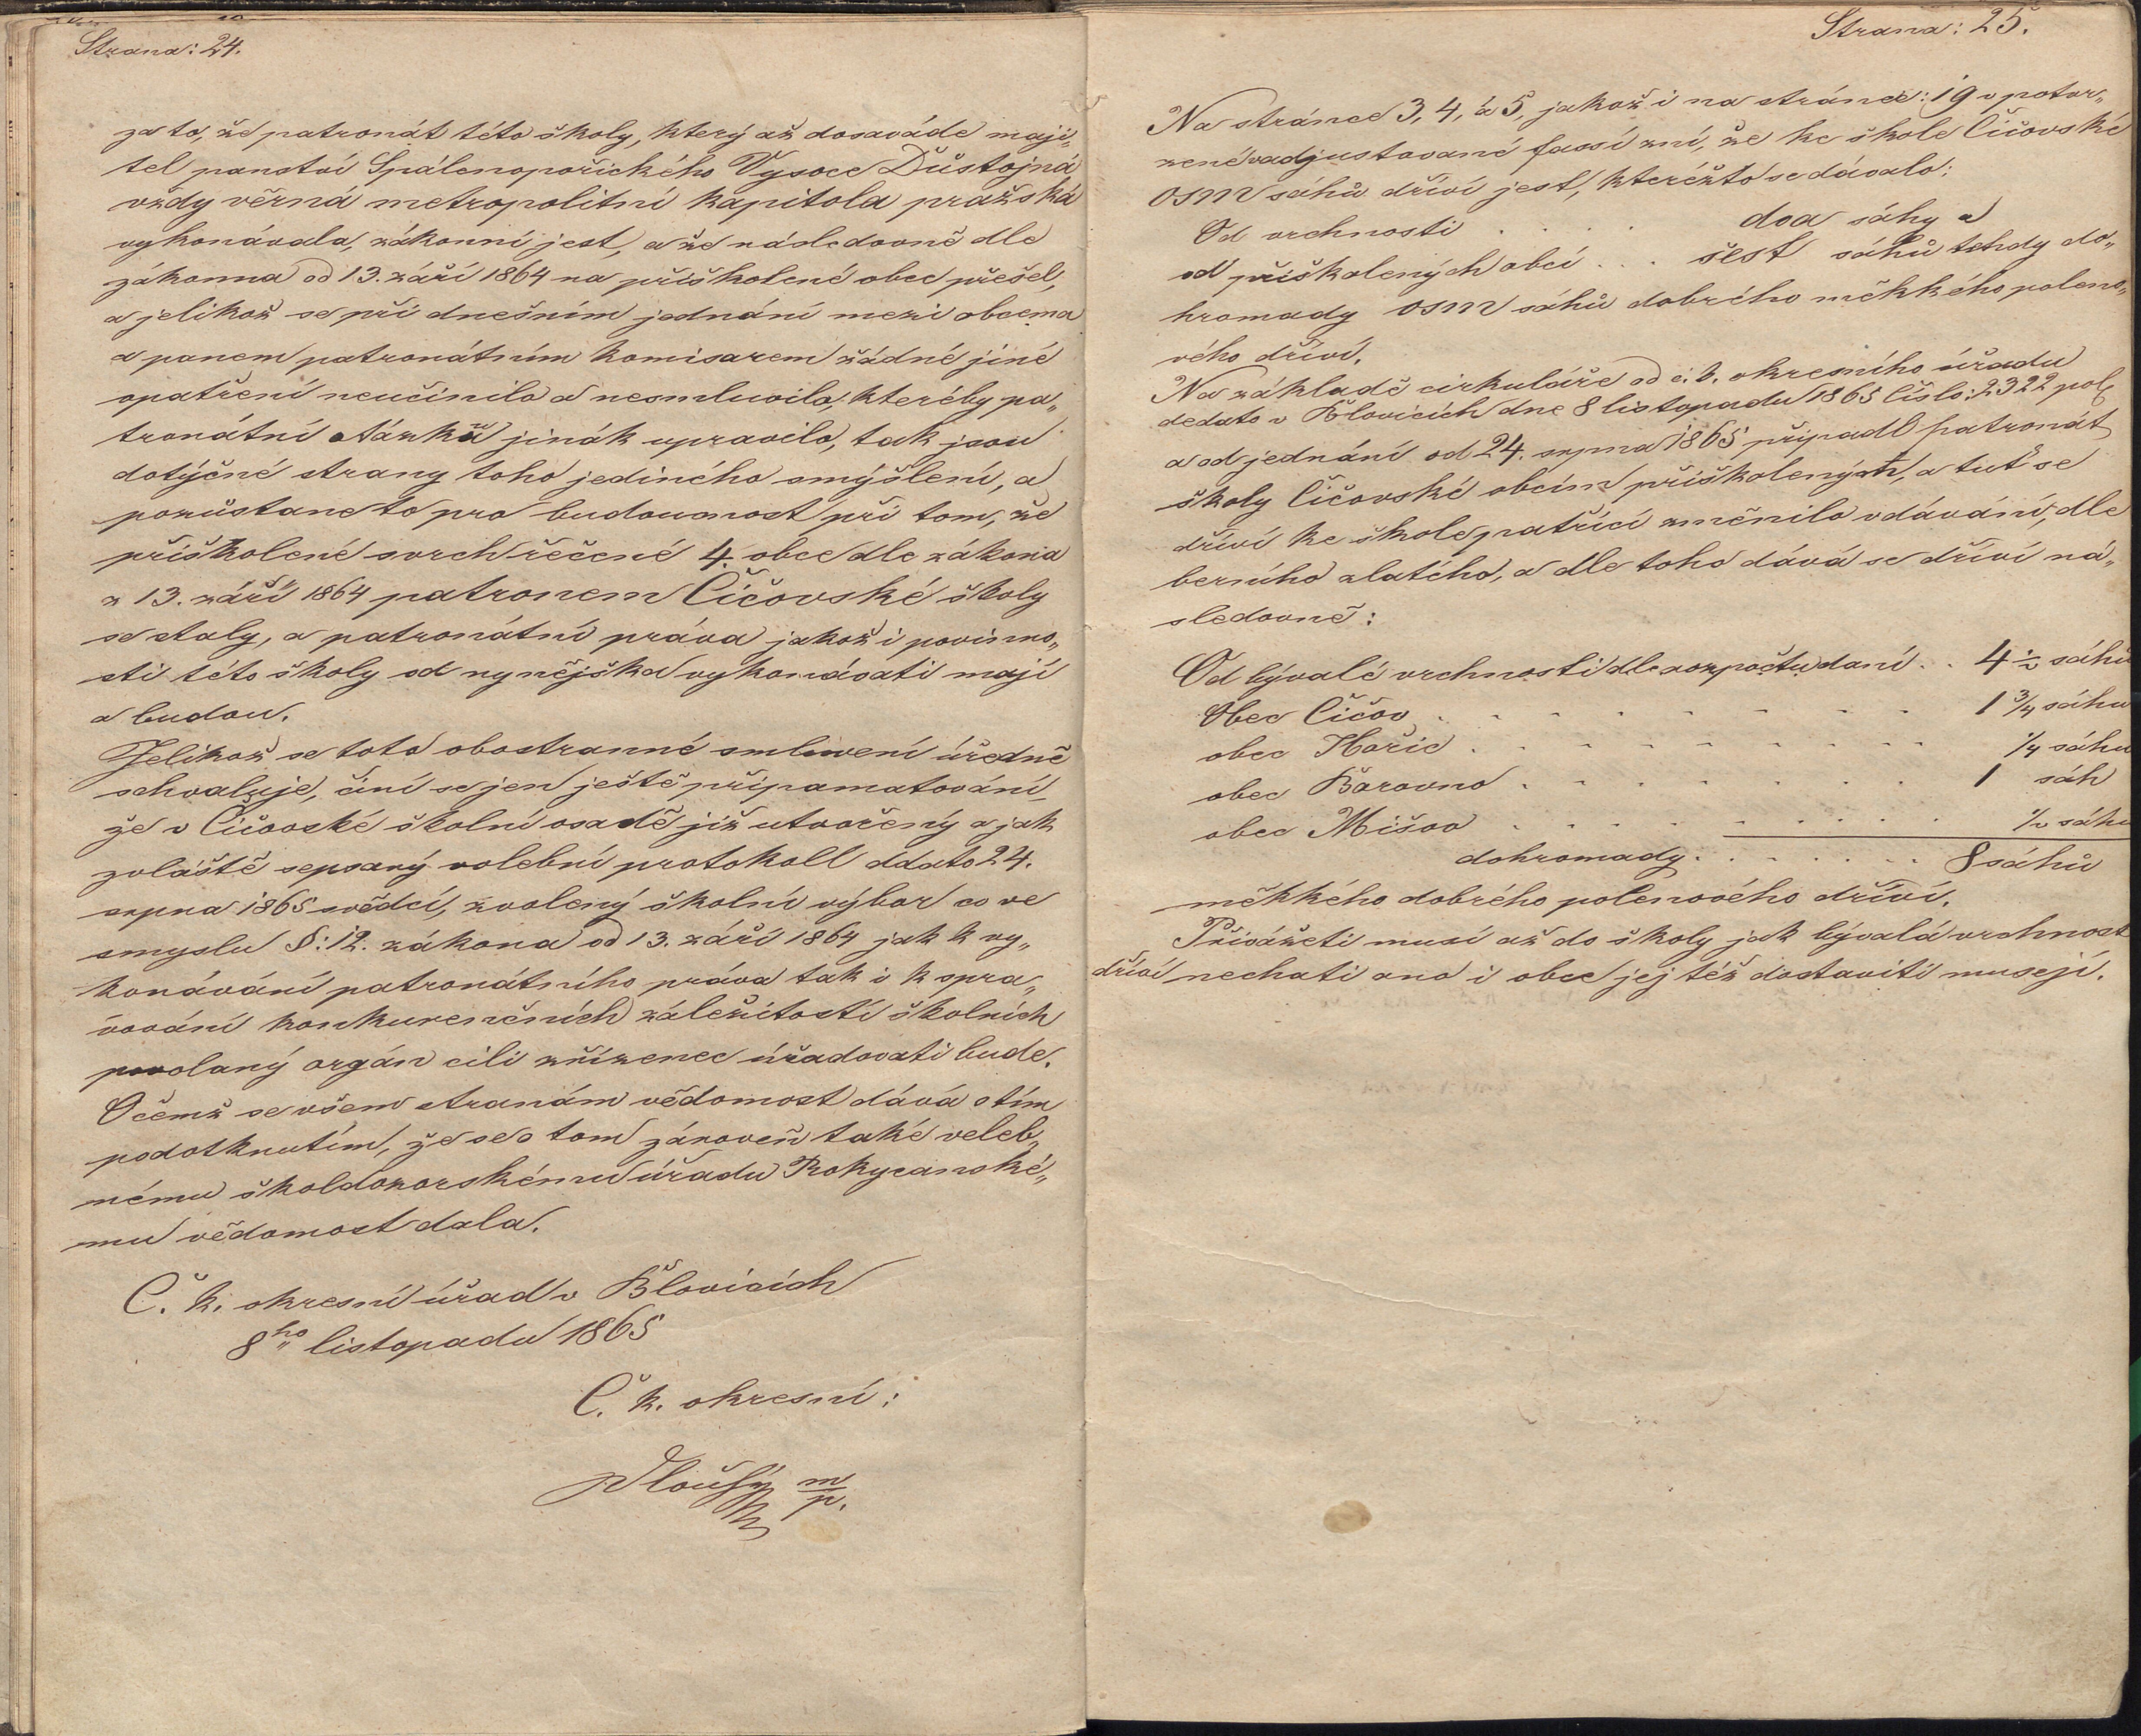 Strana: 24.
za to, že patronát této školy, který až dosaváde maji„
tel panství Spálenopořického Vysoce Důstojná
vždy věrná metropolitní kapitola pražská
vykonávala, zákonní jest, a že následovně dle
zákonna od 13. září 1864 na přiškolené obce přešel,
a jelikož se při dnešním jednání mezi obcema
a panem patronátním komisarem žádné jiné
opatření neučinilo a nesmluvilo, kteréby pa„
tronátní otázku jinák upravilo, tak jsou
dotýčné strany toho jediného smýšlení, a
pozůstane to pro budoucnost při tom, že
přiškolené svrchřečené 4. obce dle zákona
z 13. září 1864 patronem Čičovské školy
se staly, a patronátní práva jakož i povinno„
sti této školy od nynějška vykonávati mají
a budou.
Jelikož se toto obostranné smluvení úředně
schvaluje, činí se jen ještě připamatování
že v Čičovské školní osadě již utvořený a jak
zvláště sepsaný volební protokoll ddato 24.
srpna 1865 svědčí, zvolený školní výbor co ve
smyslu §: 12. zákona od 13. září 1864 jak k vy„
konávání patronátního práva tak i k spra„
vování konkurenčních záležitostí školních
povolaný orgán čili zřízenec úřadovati bude.
Očemž se všem stranám vědomost dává s tím
podotknutím, že se o tom zároveň také veleb„
nému školdozorskému úřadu Rokycanské„
mu vědomost dala.
C. k. okresní úřad v Blovicích
8ho listopadu 1865
C. k. okresní:
m/p.
Strana: 25.
Na stránce 3, 4, a 5, jakož i na stránce: 19 v potvr„
zené vadjustované fassí zní, že ke škole Čičovské
osm sáhů dříví jest, kteréžto se dávalo:
Od vrchnosti . . . . dva sáhy a
od přiškolených obcí . . . šest sáhů tehdy do„
hromady osm sáhů dobrého měkkého poleno„
vého dříví.
Na základě cirkuláře od c. k. okresního úřadu
dedato v Blovicích dne 8 listopadu 1865 Číslo: 2322 pol
a od jednání od 24. srpna 1865 připadl patronát
školy Čičovské obcím přiškoleným, a tuť se
dříví ke škole patřící změnilo vdávání, dle
berního zlatého, a dle toho dává se dříví ná„
sledovně:
Od bývalé vrchnosti dle rozpočtu daní . . 4 1/2 sáhů
Obec Čičov . . . . . . . . . 1 3/4 sáhu
obec Hořic . . . . . . . . . 1/4 sáhu
obec Borovno . . . . . . . . 1 sáh
obec Mišov . . . . . . . . . 1/2 sáhu
dohromady . . . . . . . 8 sáhů
měkkého dobrého polenového dříví.
Přivážeti musí až do školy jak bývalá vrchnost
dříví nechati ano i obce jej též dostaviti musejí.